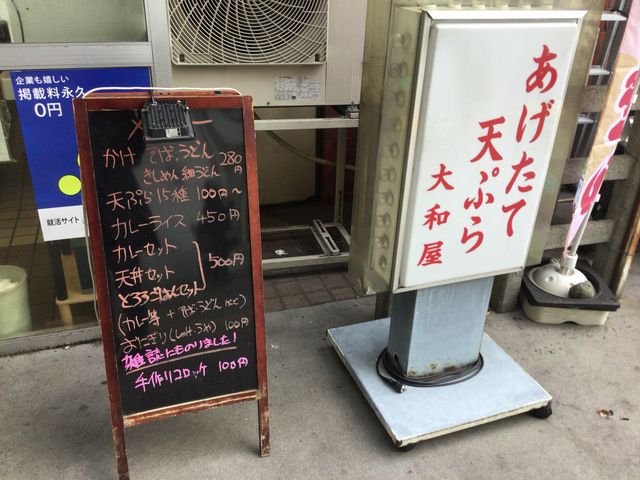 企業も嬉しい
掲載料永久
0円
就活サイト
メニュー
かけ そば、うどん 280円
きしめん 細うどん
天ぷら 15種 100円~
カレーライス 450円
カレーセット
天丼セット 500円
とろろごはんセット
(カレー等 + そば、うどんなど)
おにぎり(しゃけ、うめ) 100円
雑誌にものりました!
手作りコロッケ 100円
あげたて
天ぷら
大和屋